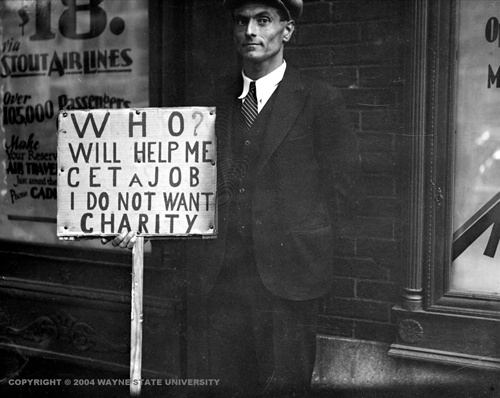 $18.
via
STOUT AIR LINES
Over
105,000 Passengers
Make
Your Reserv
AIR TRAVEL
Just around the
Phone CADI
WHO?
WILL HELP ME
GET A JOB
I DO NOT WANT
CHARITY
O
M
COPYRIGHT © 2004 WAYNE STATE UNIVERSITY